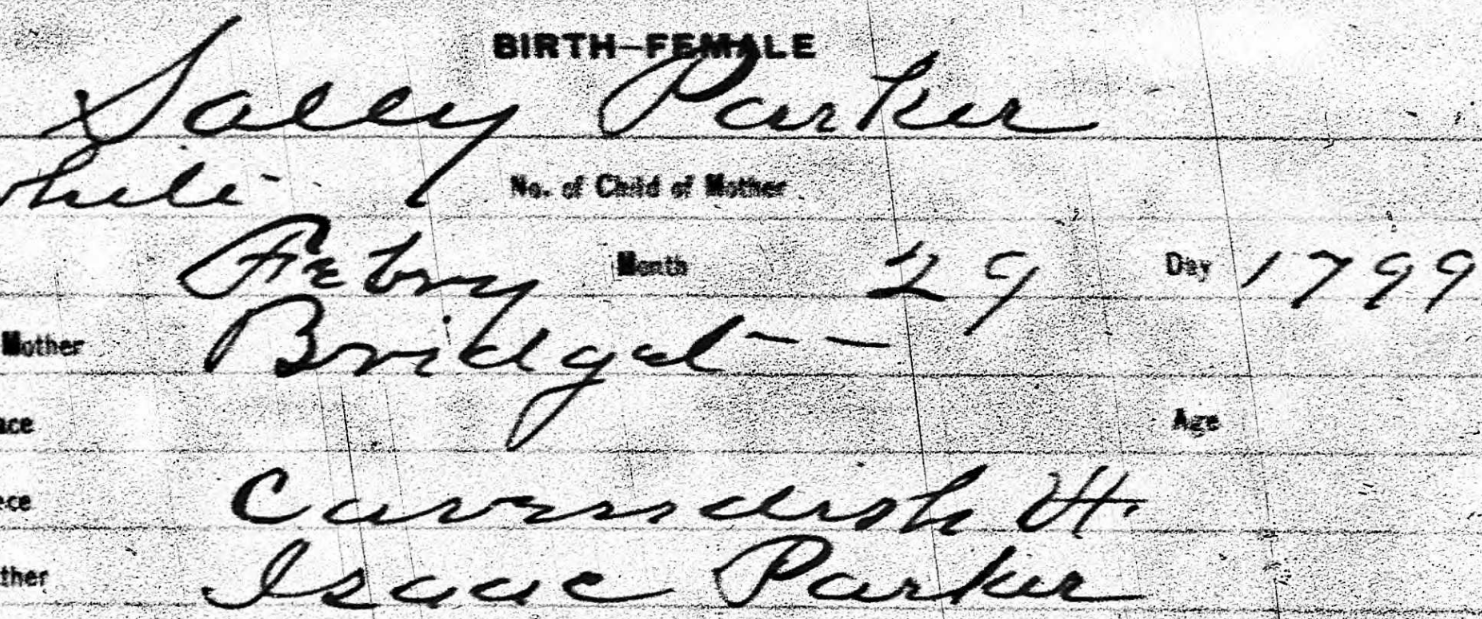 BIRTH—FEMALE
Sally Parker
White No. of Child of Mother
Febry Month 29 Day 1799
Mother Bridget — —
Age
Cavendish Vt.
Isaac Parker